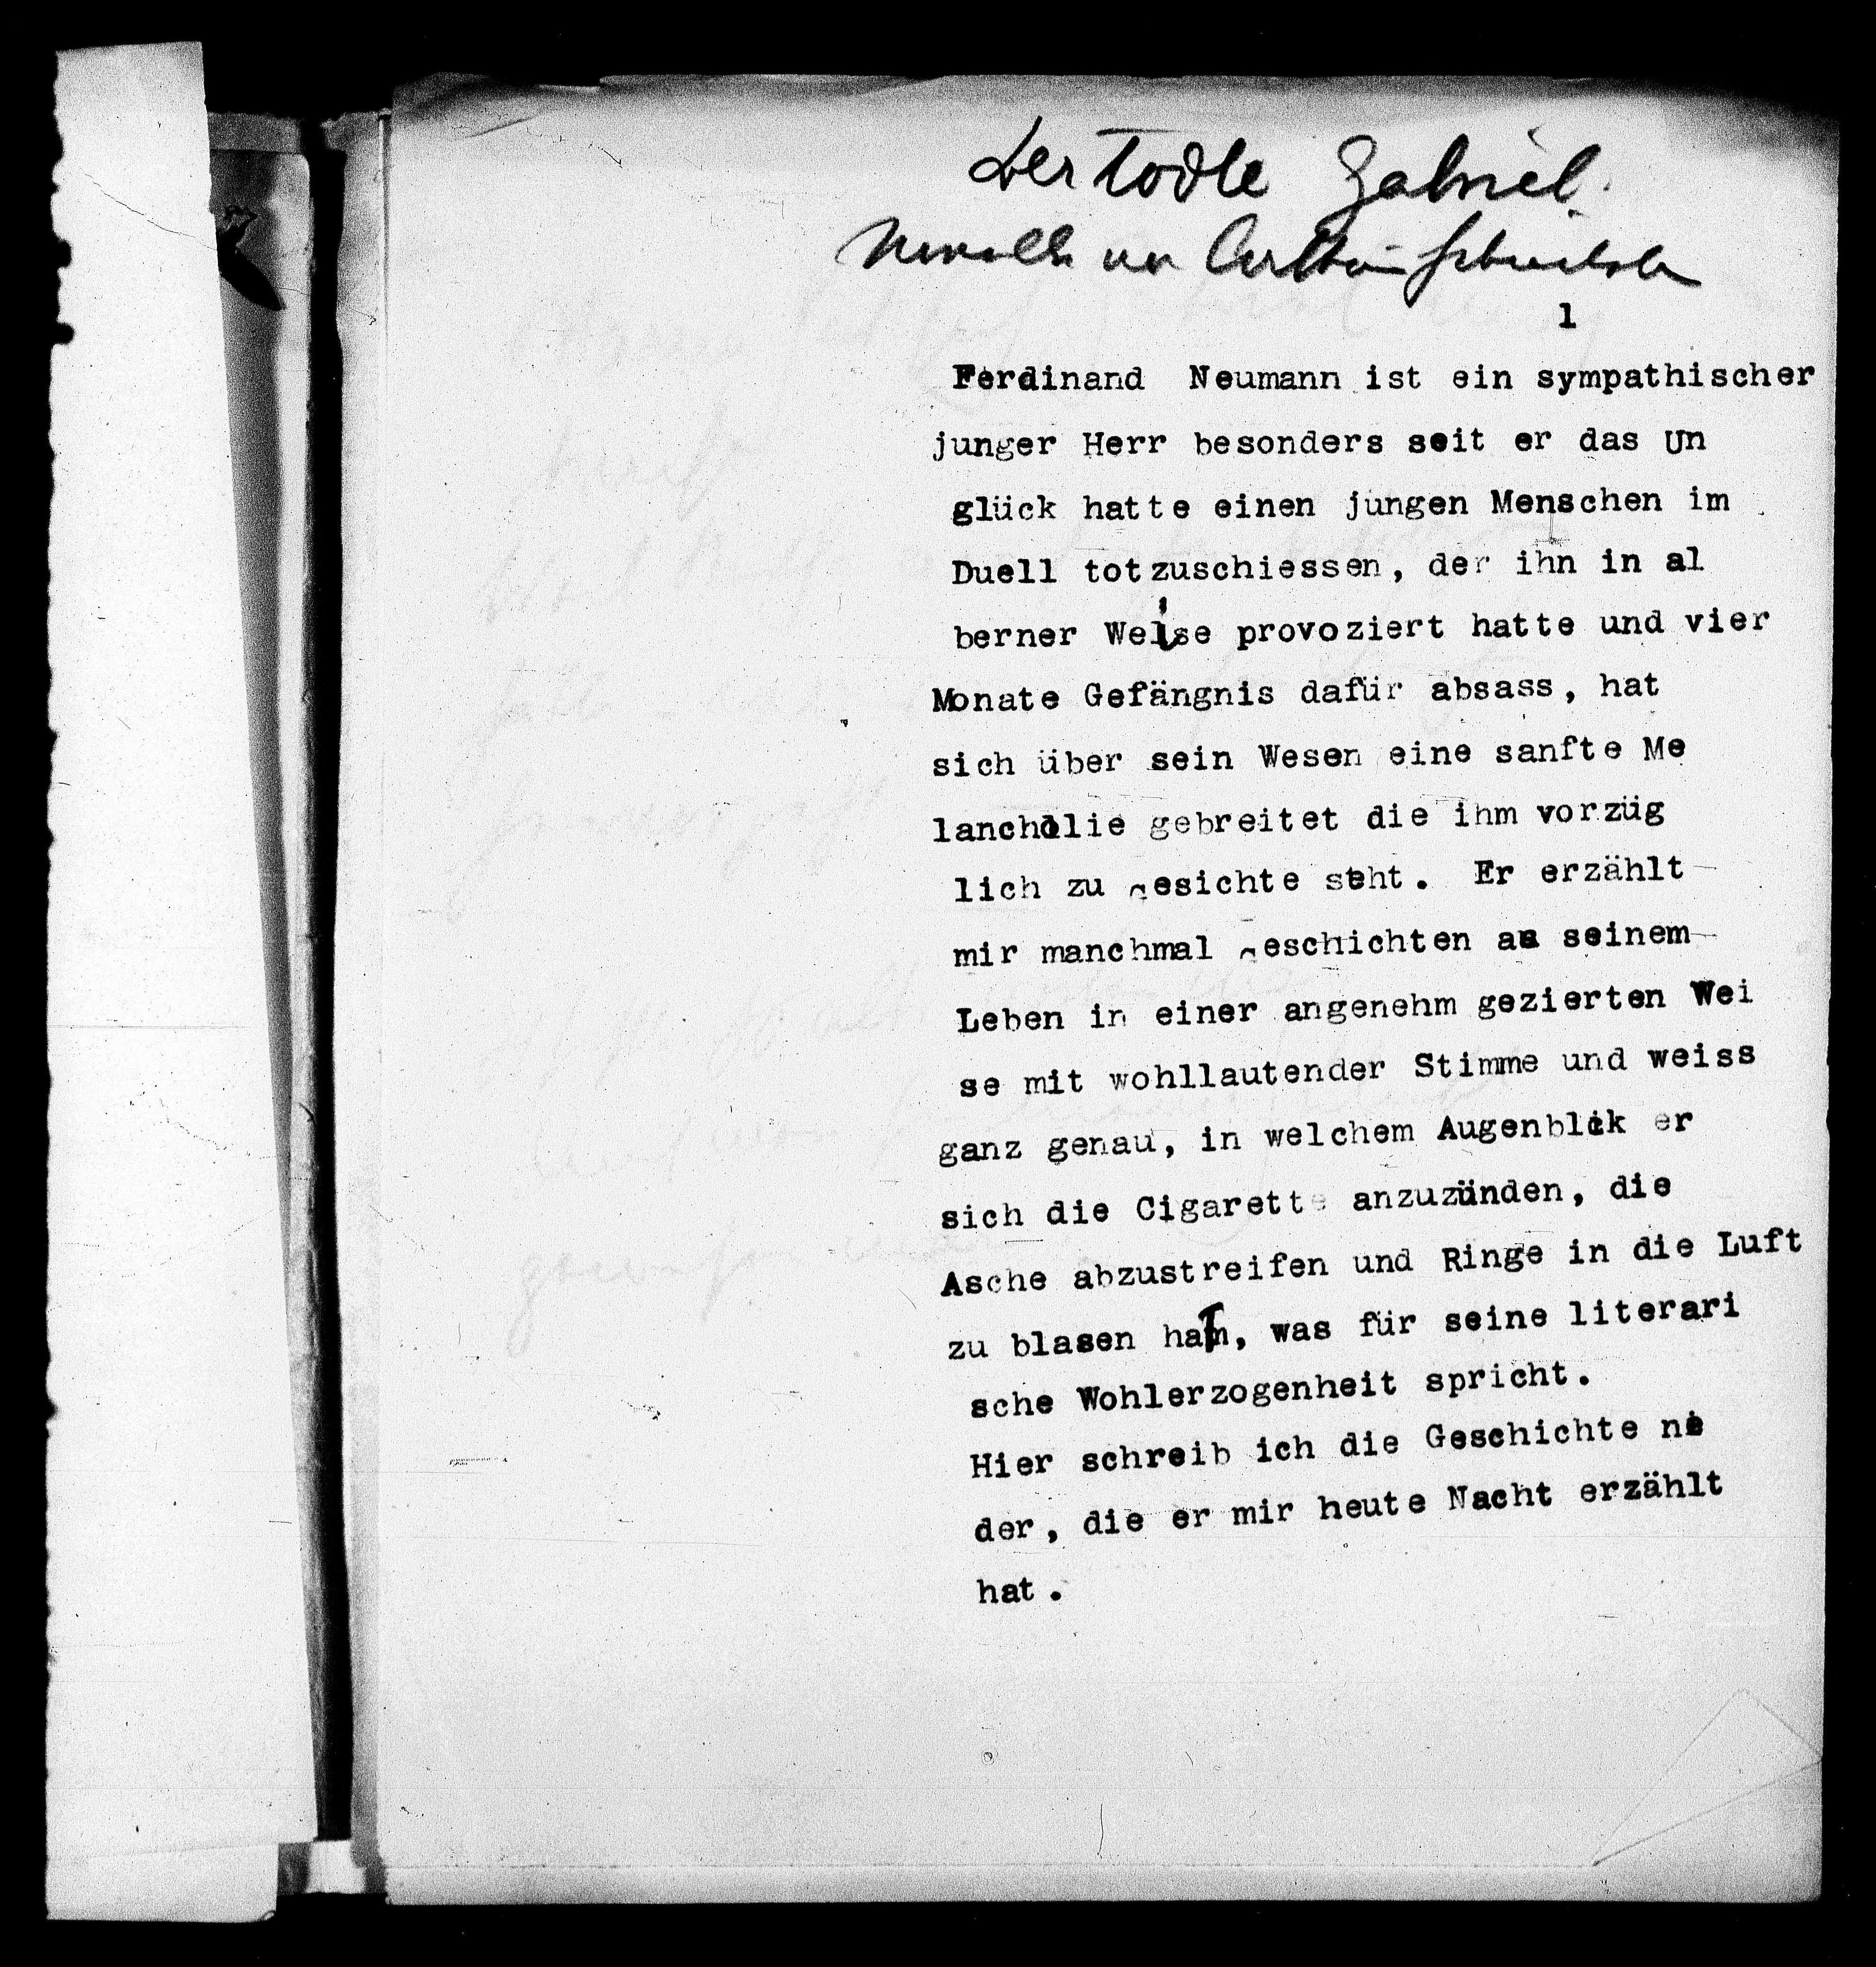 Der Todte Gabriel.
Novelle von Arthur Schnitzler
1
Ferdinand Neumann ist ein sympathischer
junger Herr besonders seit er das Un
glück hatte einen jungen Menschen im
Duell totzuschiessen, der ihn in al
berner Weise provoziert hatte und vier
Monate Gefängnis dafür absass, hat
sich über sein Wesen eine sanfte Me
lancholie gebreitet die ihm vorzüg
lich zu gesichte steht. Er erzählt
mir manchmal geschichten aus seinem
Leben in einer angenehm gezierten Wei
se mit wohllautender Stimme und weiss
ganz genau, in welchem Augenblick er
sich die Cigarette anzuzünden, die
Asche abzustreifen und Ringe in die Luft
zu blasen hat, was für seine literari
sche Wohlerzogenheit spricht.
Hier schreib ich die Geschichte nie
der, die er mir heute Nacht erzählt
hat.